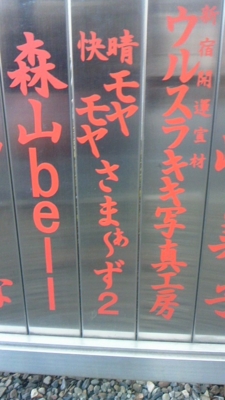 新宿開運宝材
ウルスラキキ写真工房
快晴モヤモヤさまぁ〜ず2
森山bell